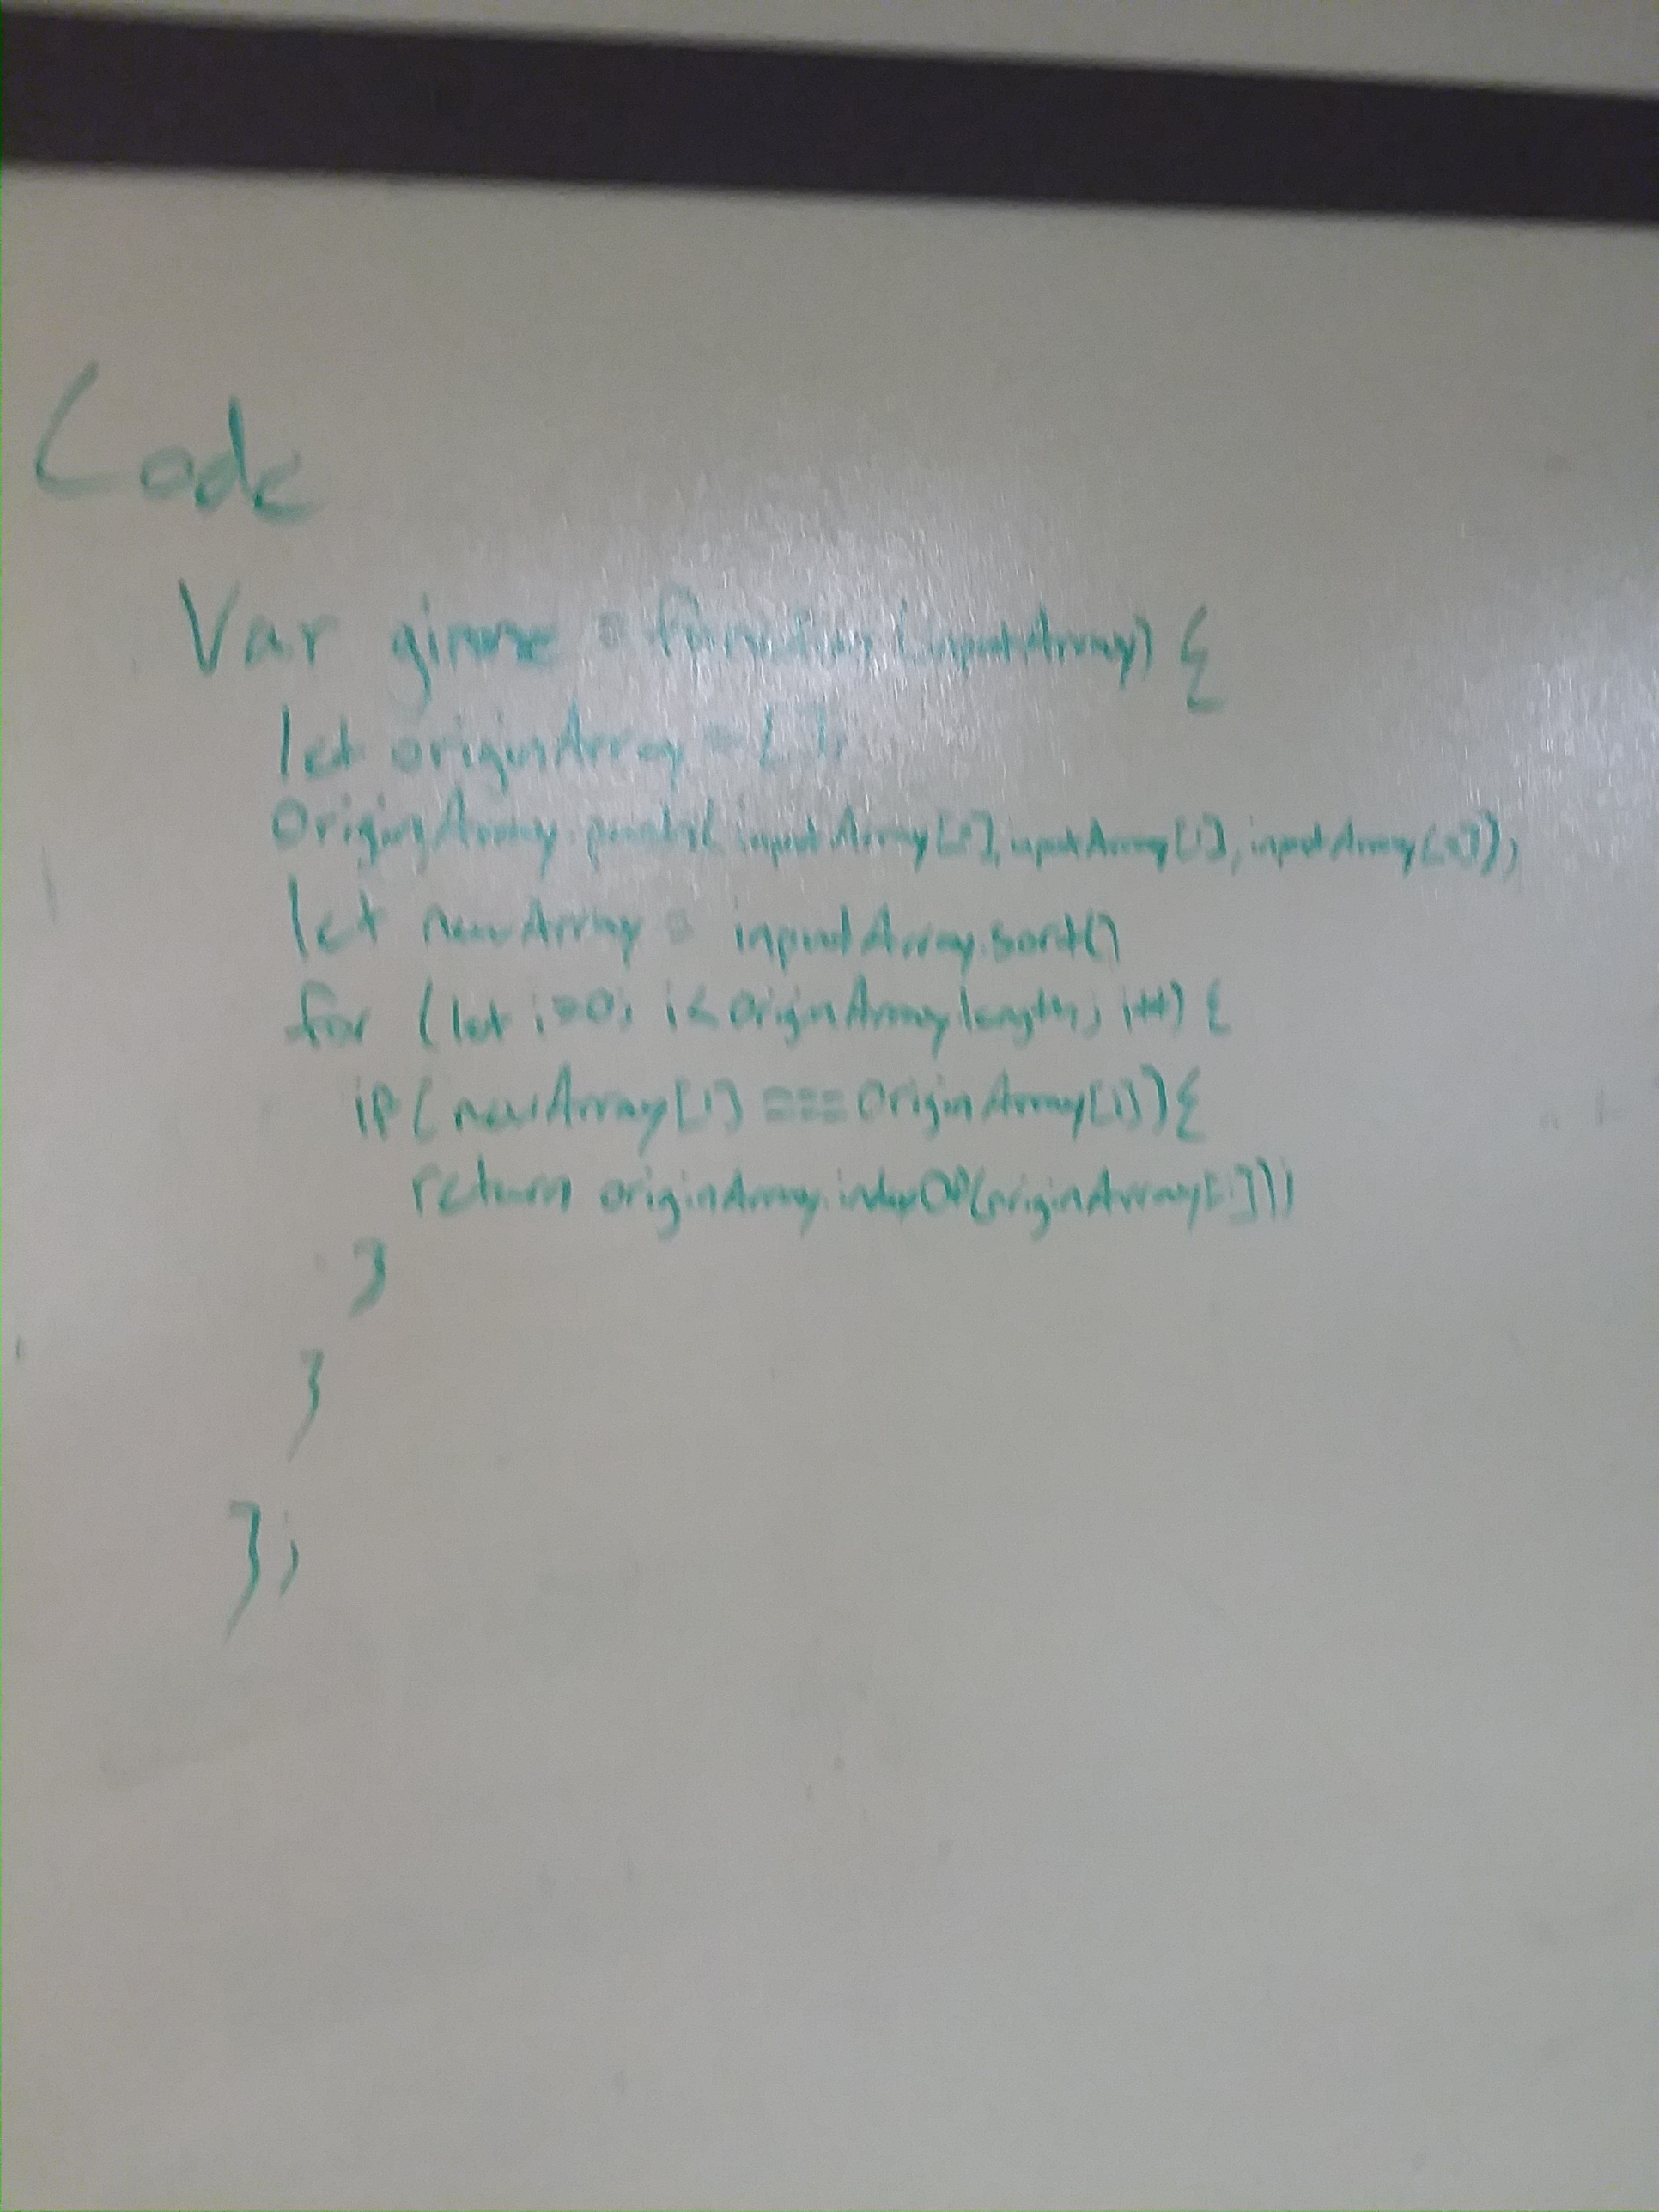 Code
Var gimme = function (inputArray) {
let originArray = [ ];
OriginArray.push( inputArray[0], inputArray[1], inputArray[2]);
let newArray = inputArray.sort()
for (let i=0; i< OriginArray.length; i++) {
if ( newArray[1] === OriginArray[i]) {
return originArray.indexOf(originArray[i]))
}
}
};